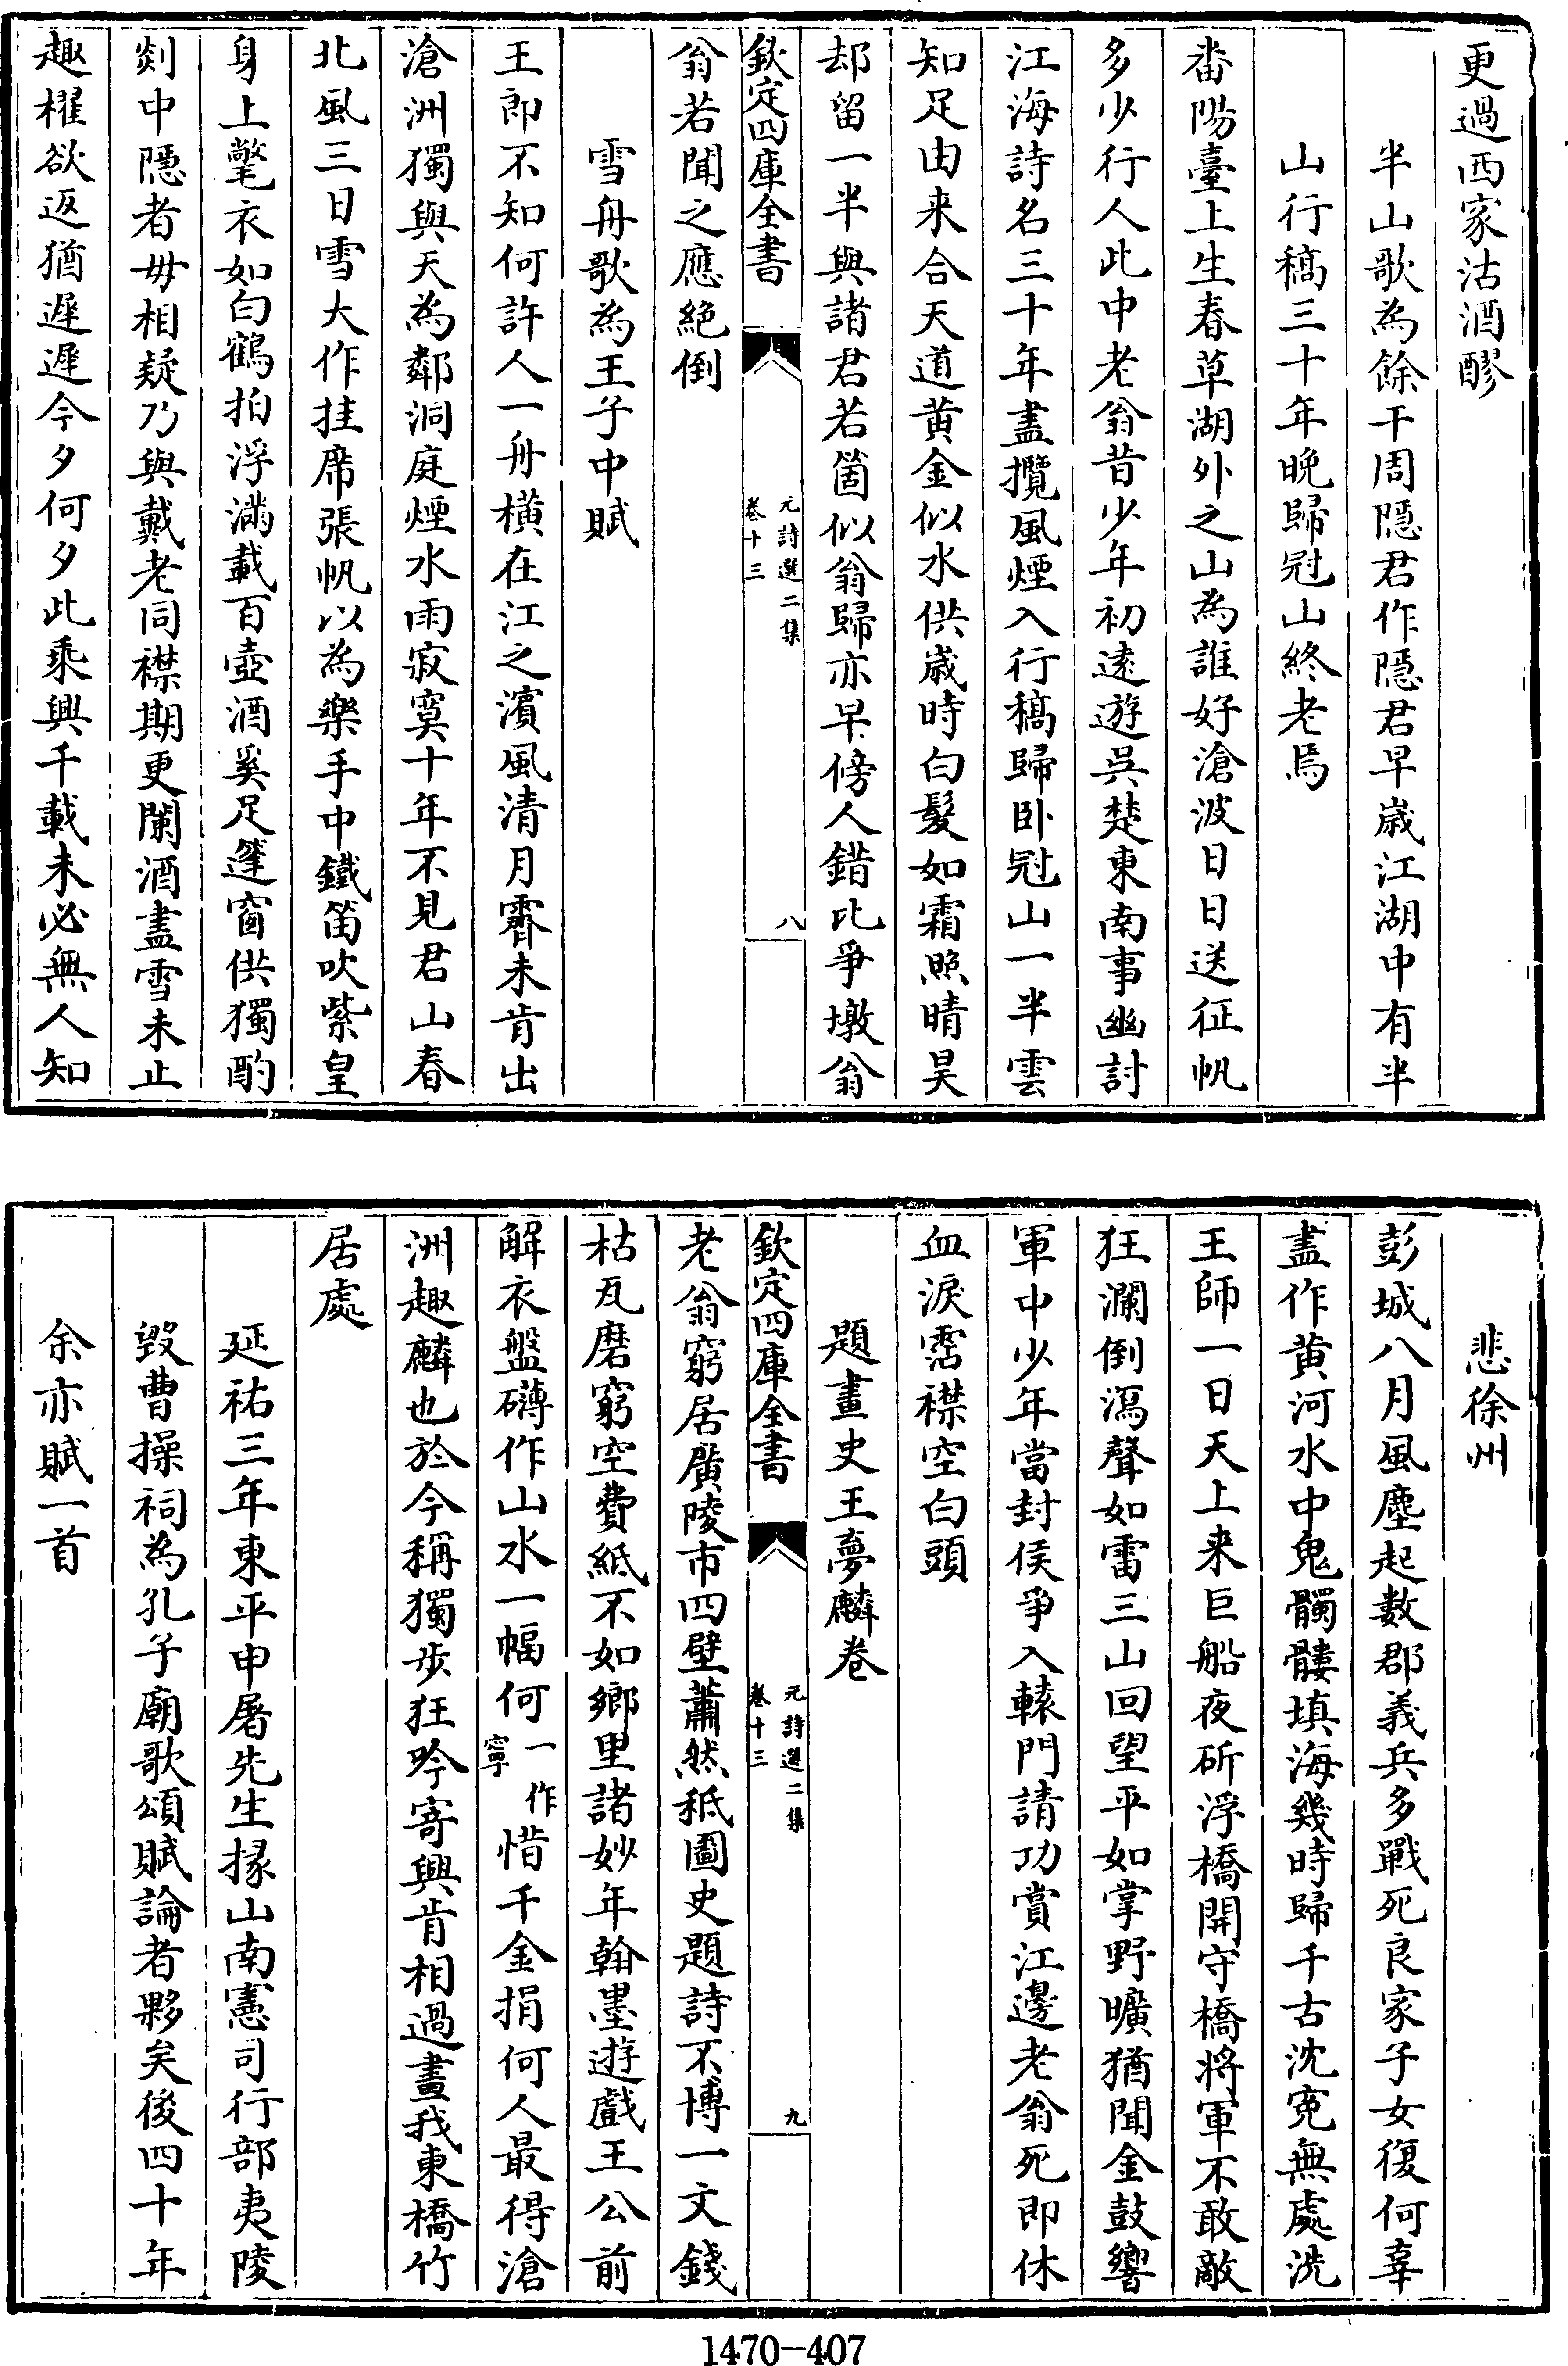 更過西家沽酒醪
半山歌為餘干周隱君作隱君早歲江湖中有半
山行稿三十年晚歸冠山終老焉
番陽臺上生春草湖外之山為誰好滄波日日送征帆
多少行人此中老翁昔少年初遠遊吳楚東南事幽討
江海詩名三十年盡攬風煙入行稿歸卧冠山一半雲
知足由来合天道黃金似水供歲時白髮如霜照晴昊
却留一半與諸君若箇似翁歸亦早傍人錯比爭墩翁
欽定四庫全書
元詩選二集
卷十三
八
翁若聞之應絶倒
雪舟歌為王子中賦
王郎不知何許人一舟橫在江之濱風清月霽未肯出
滄洲獨與天為鄰洞庭煙水雨寂寞十年不見君山春
北風三日雪大作挂席張帆以為樂手中鐵笛吹紫皇
身上氅衣如白鶴拍浮滿載百壺酒奚足篷窗供獨酌
剡中隱者毋相疑乃與戴老同襟期更闌酒盡雪未止
趣櫂欲返猶遲遲今夕何夕此乘興千載未必無人知
悲徐州
彭城八月風塵起數郡義兵多戰死良家子女復何辜
盡作黃河水中鬼髑髏填海幾時歸千古沈寃無處洗
王師一日天上来巨船夜斫浮橋開守橋將軍不敢敵
狂瀾倒瀉聲如雷三山回望平如掌野曠猶聞金鼓響
軍中少年當封侯爭入轅門請功賞江邊老翁死即休
血淚霑襟空白頭
題畫史王夢麟卷
欽定四庫全書
元詩選二集
卷十三
九
老翁窮居廣陵市四壁蕭然秪圖史題詩不博一文錢
枯瓦磨窮空費紙不如鄉里諸妙年翰墨遊戲王公前
解衣盤礴作山水一幅何一作寧惜千金捐何人最得滄
洲趣麟也於今稱獨步狂吟寄興肯相過畫我東橋竹
居處
延祐三年東平申屠先生掾山南憲司行部夷陵
毀曹操祠為孔子廟歌頌賦論者夥矣後四十年
余亦賦一首
1470-407